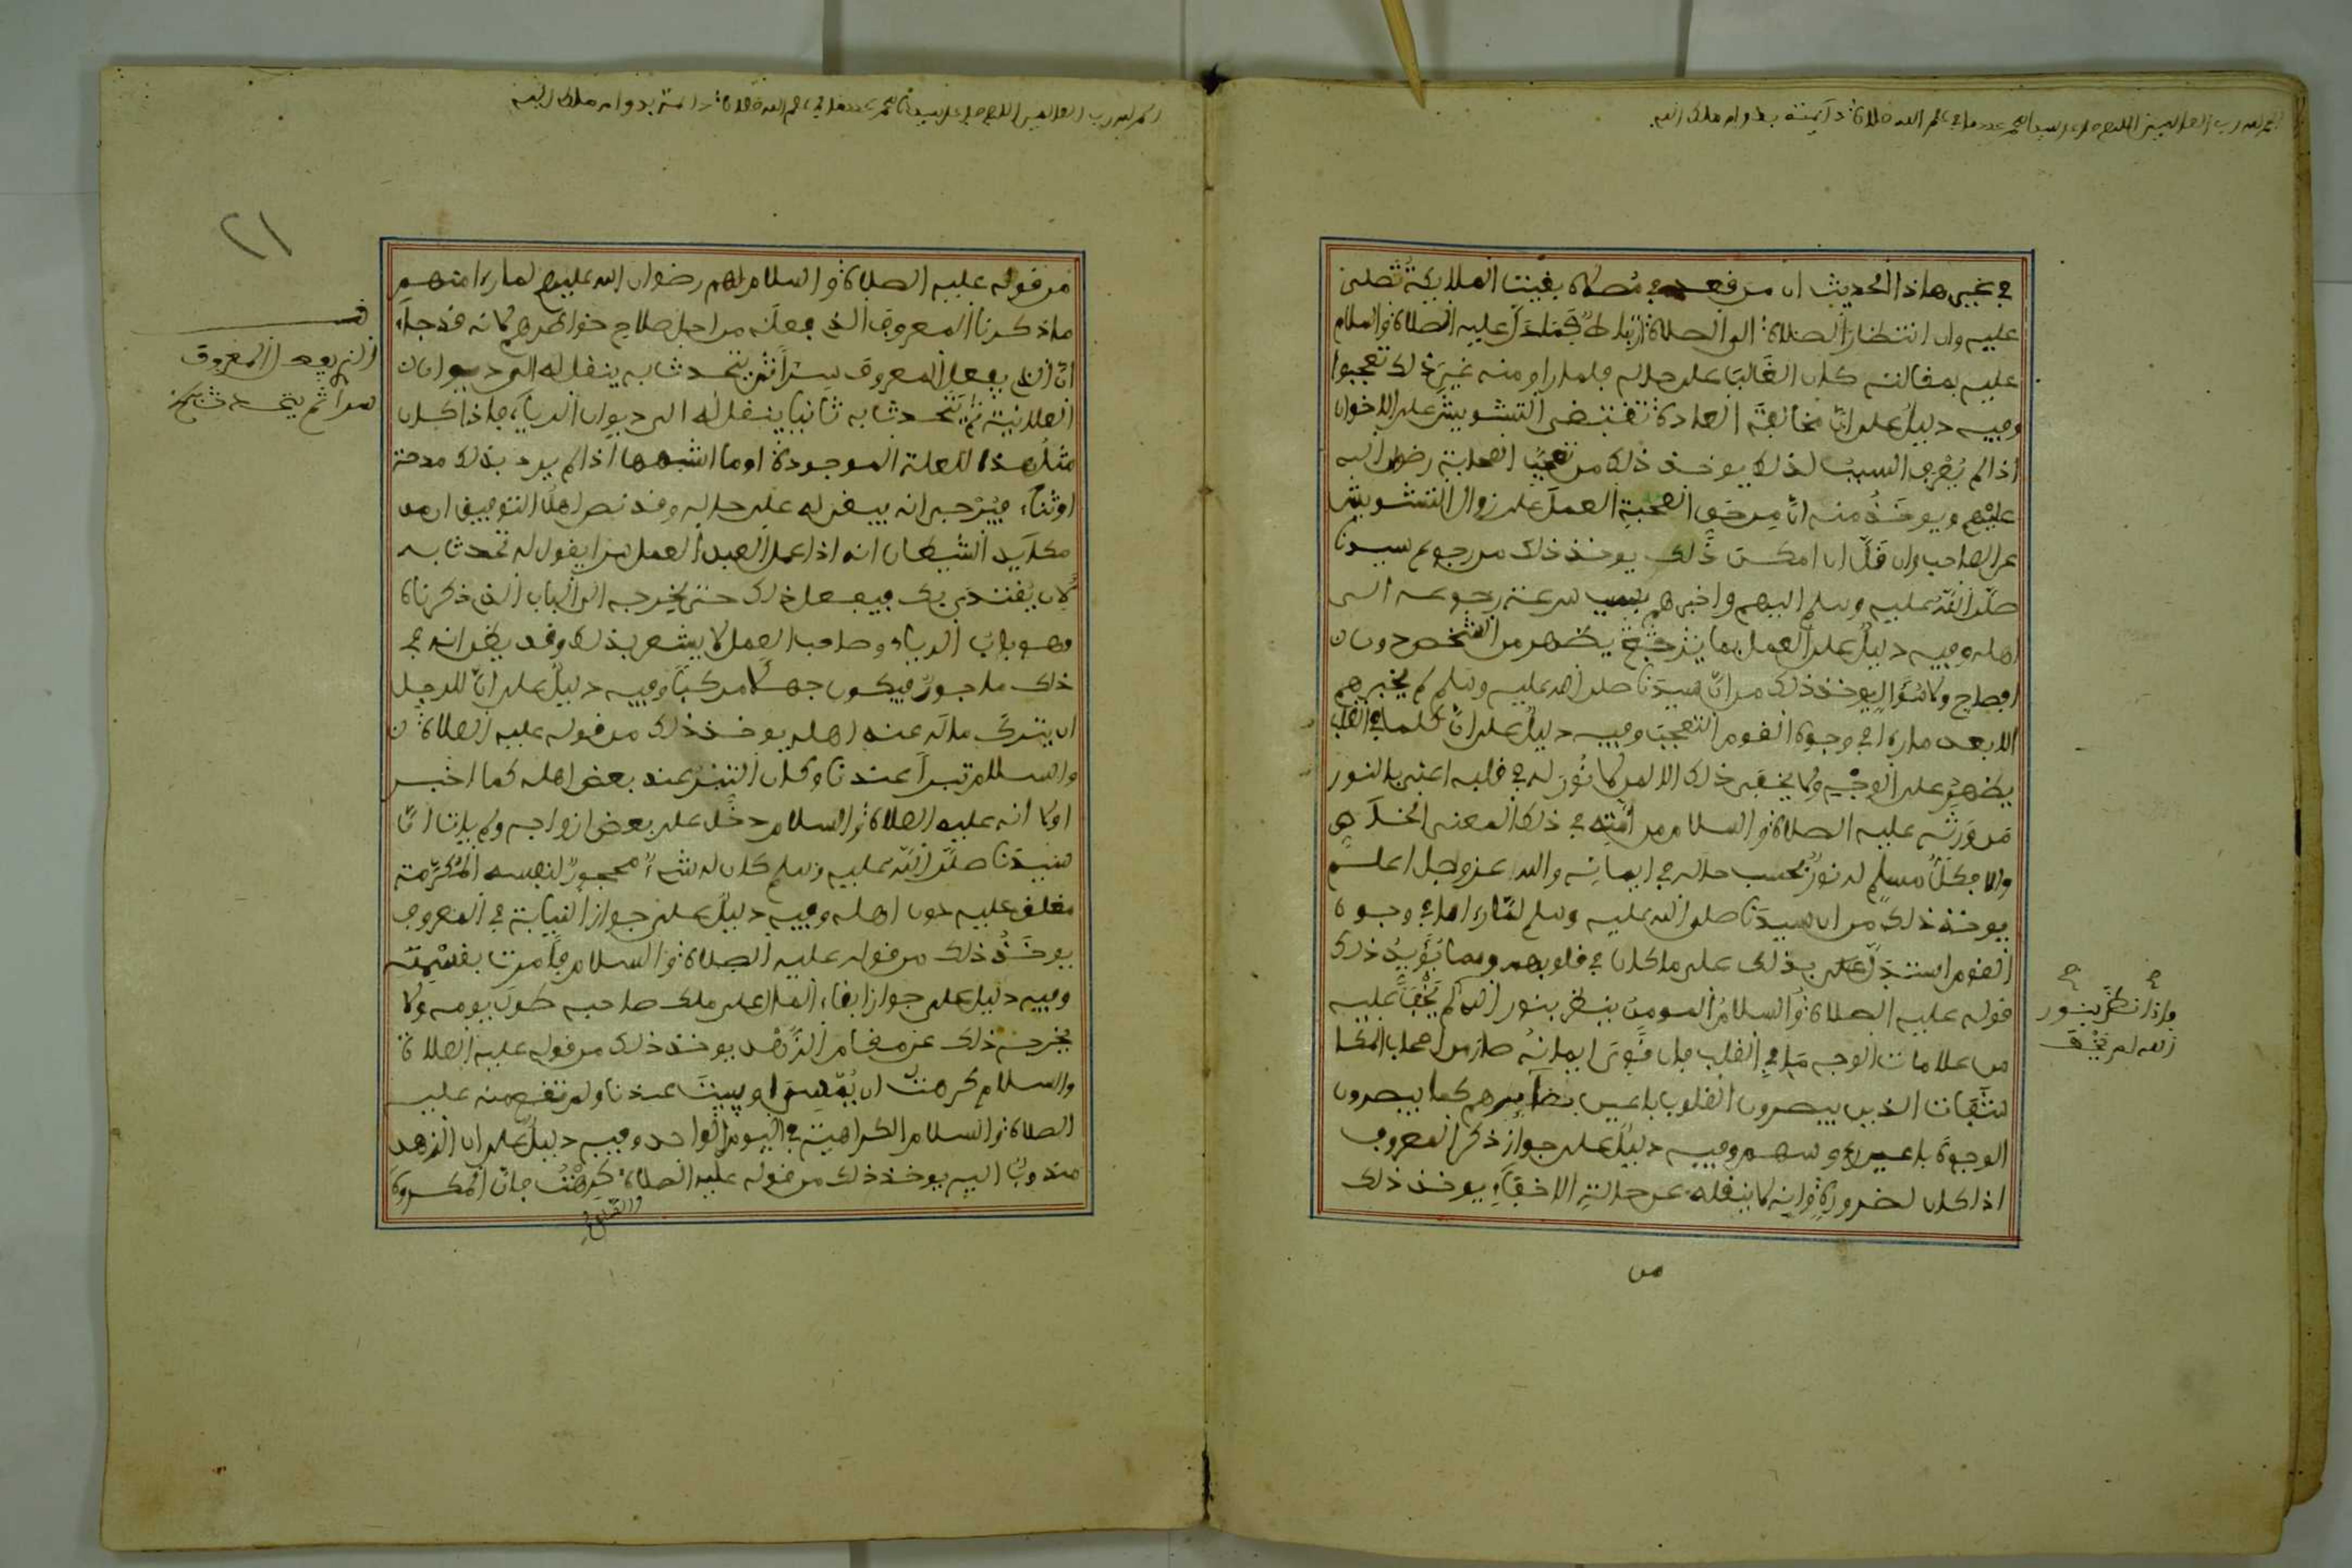 الحمد لله رب العالمين اللهم صل على سيدنا محمد عدد ما في علم الله صلاة دائمة بدوام ملك الله
في غير هاذا الحديث ان من فعد في مصلاه بفيت الملايكة تصلى
عليه وان انتظار الصلاة الى الصلاة ارباط فجملة دل عليه الصلاة والسلام
عليه بمفالته كان الغالب على حاله فلما راو منه غير ذلك تعجبوا
وفيه دليل على ان مخالفة العادة تفتضى التشويش على الاخوان
اذا لم يعرف السبب لذلك يوخذ ذلك من تعجب الصحابة رضوان الله
عليهم ويوخذ منه ان من حق الصحبة العمل على زوال التشويش
عن الصاحب وان قل ان امكن ذلك يوخذ ذلك من رجوع سيدنا
صلى الله عليه وسلم اليهم واخبرهم بسبب سرعة رجوعه الى
اهله وفيه دليل على العمل بما يترجح يظهر من الشخص دون
افصاح ولا سؤال يوخذ ذلك من ان سيدنا صلى الله عليه وسلم لم يخبرهم
الا بعد ما راى في وجوه الفوم التعجب وفيه دليل على ان كلما في الفلب
يظهر على الوجه ولا يخفى ذلك الا لمن لا نور له في فلبه اعنى بالنور
من ورثه عليه الصلاة والسلام من امته في ذلك المعنى الخاص
والا فكل مسلم له نور بحسب حاله في ايمانه والله عز وجل اعلم
يوخذ ذلك من ان سيدنا صلى الله عليه وسلم لما راى ما في وجوه
الفوم استدل بذلك على ما كان في فلوبهم ومما يؤيد ذلك
فوله عليه الصلاة والسلام المومن ينظر بنور الله لم يخف عليه
من علامات الوجه ما في الفلب فان فوى ايمانه صار من اصحاب المكا
شفات الذين يبصرون الفلوب باعين بصآيرهم كما يبصرون
الوجوه باعين رءوسهم وفيه دليل على جواز ذكر المعروف
اذا كان لضرورة وانه لا ينفله عن حالة الاخفاء يوخذ ذلك
من
فاذا نظر بنور
الله لم يخف
الحمد لله رب العالمين اللهم صل على سيدنا محمد عدد ما في علم الله صلاة دائمة بدوام ملك الله
٢١
من فوله عليه الصلاة والسلام لهم رضوان الله عليهم لما راى منهم
ما ذكرنا المعروف الذى فعله من اجل صلاح خواطرهم لانه فد جاء
ان الذى يفعل المعروف سرا ثم يتحدث به ينفل له الى ديوان
العلانية ثم يتحدث به ثانيا ينفل له الى ديوان الرياء فاذا كان
مثل هذا للعلة الموجودة او ما اشبهها اذا لم يرد بذلك مدحة
او ثناء فيرجى انه يبفى له على حاله وفد نص اهل التوفيق ان من
مكايد الشيطان انه اذا عمل العبد العمل سرا يفول له تحدث به
لان يفتدى بك فيفعل ذلك حتى يخرجه الى الباب الذى ذكرناه
وهو باب الرياء وصاحب العمل لا يشعر بذلك وفد يظن انه في
ذلك ماجور فيكون جهلا مركبا وفيه دليل على ان للرجل
ان يترك ماله عند اهله يوخذ ذلك من فوله عليه الصلاة
والسلام تبرا عندنا وكان التبر عند بعض اهله كما اخبر
اولا انه عليه الصلاة والسلام دخل على بعض ازواجه ولم يات ان
سيدنا صلى الله عليه وسلم كان له شيء محجور لنفسه المكرمة
مغلق عليه دون اهله وفيه دليل على جواز النيابة في المعروف
يوخذ ذلك من فوله عليه الصلاة والسلام فامرت بفسمته
وفيه دليل على جواز ابفاء المال على ملك صاحبه طول يومه ولا
يخرجه ذلك عن مفام الزهد يوخذ ذلك من فوله عليه الصلاة
والسلام كرهت ان يمسى او يبيت عندنا ولم تفع منه عليه
الصلاة والسلام الكراهية في اليوم الواحد وفيه دليل على ان الزهد
مندوب اليه يوخذ ذلك من فوله عليه الصلاة كرهت فان المكروه
والسلام
فـ
الذى يفعل المعروف
سرا ثم يتحدث به